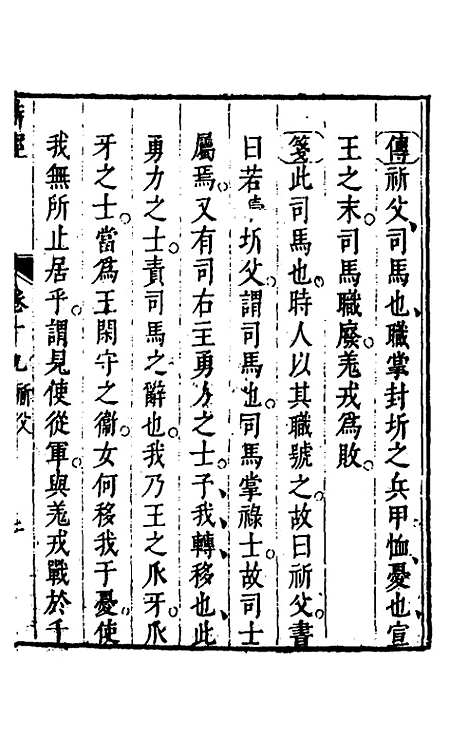 傳祈父、司馬也、職掌封圻之兵甲恤憂也、宣
王之末。司馬職廢。羌戎爲敗。
箋此司馬也。時人以其職號之。故曰祈父。書
曰若 圻父。謂司馬也。司馬掌祿士。故司士
屬焉。又有司右主勇力之士。予我、轉移也、此
勇力之士責司馬之辭也。我乃王之爪牙。爪
牙之士。當爲王閑守之衛。女何移我于憂。使
我無所止居乎。謂見使從軍。與羌戎戰於千
詩經 卷十九 祈父